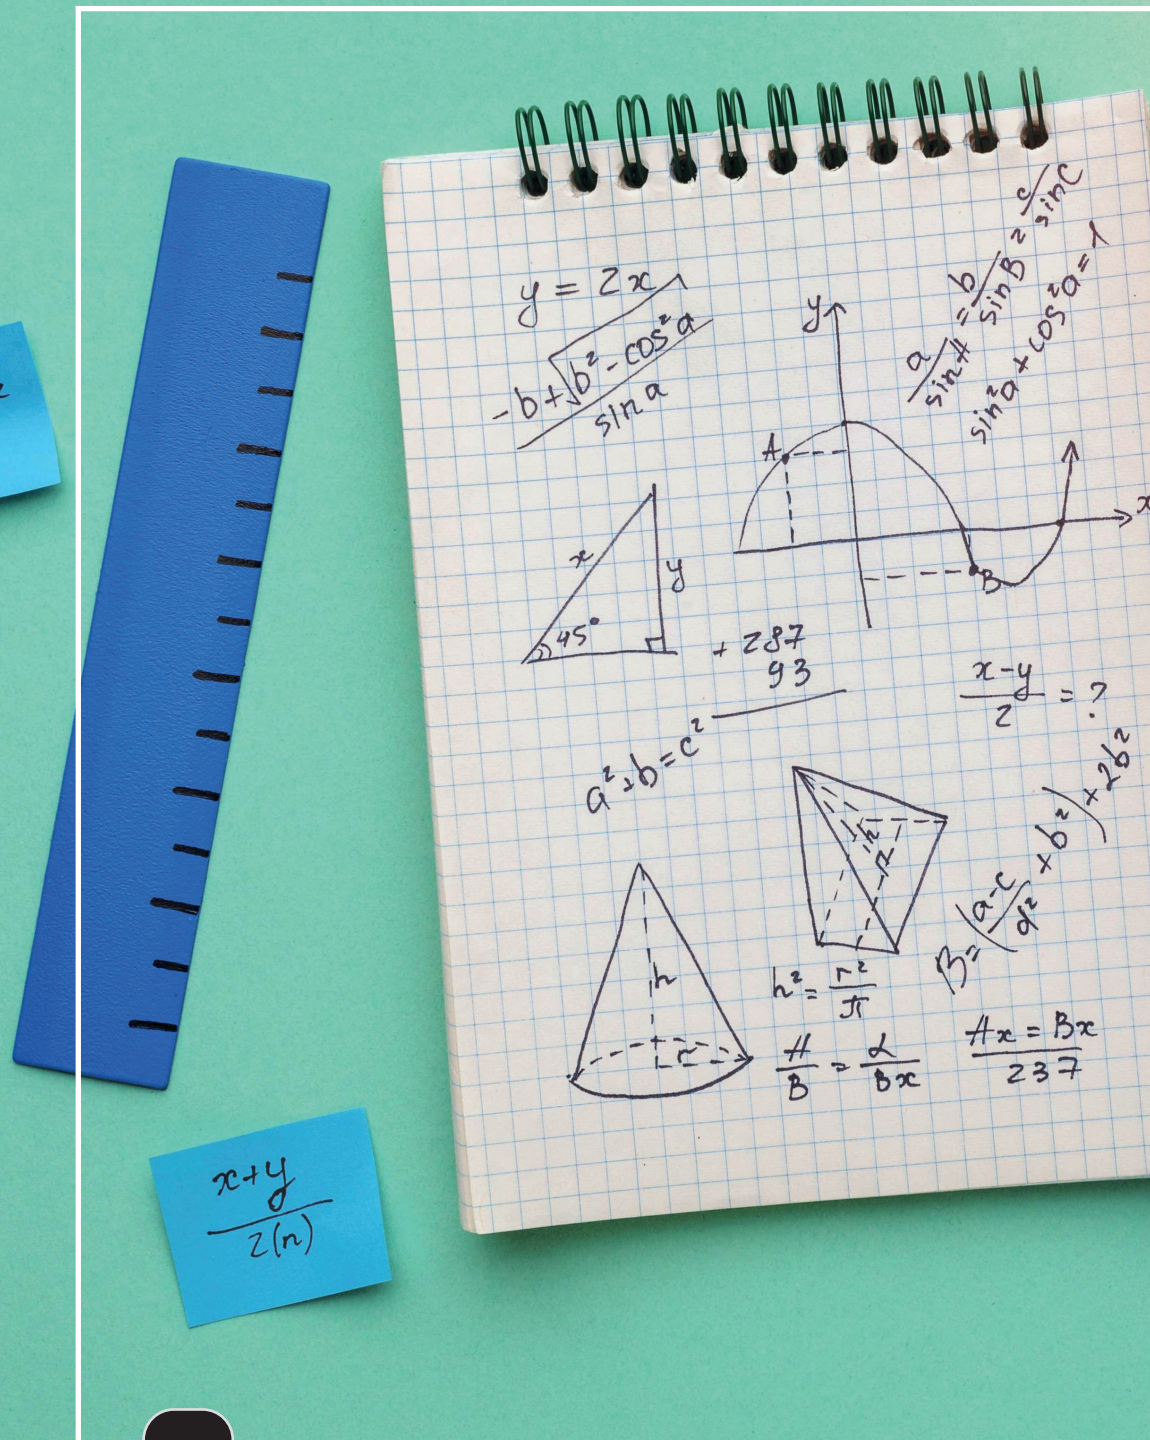 y = 2x
-b+√b²-cos²a
sin a
a/sin A = b/sin B = c/sin C
sin²a + cos²a = 1
y
A
x
B
x
y
45°
+ 287
93
x-y
2
= ?
a²+b=c²
h
B=(a-c/d² + b²) + 2b²
h
r
h² = r²/π
A/B = L/Bx
Ax = Bx
237
x+y
2(n)